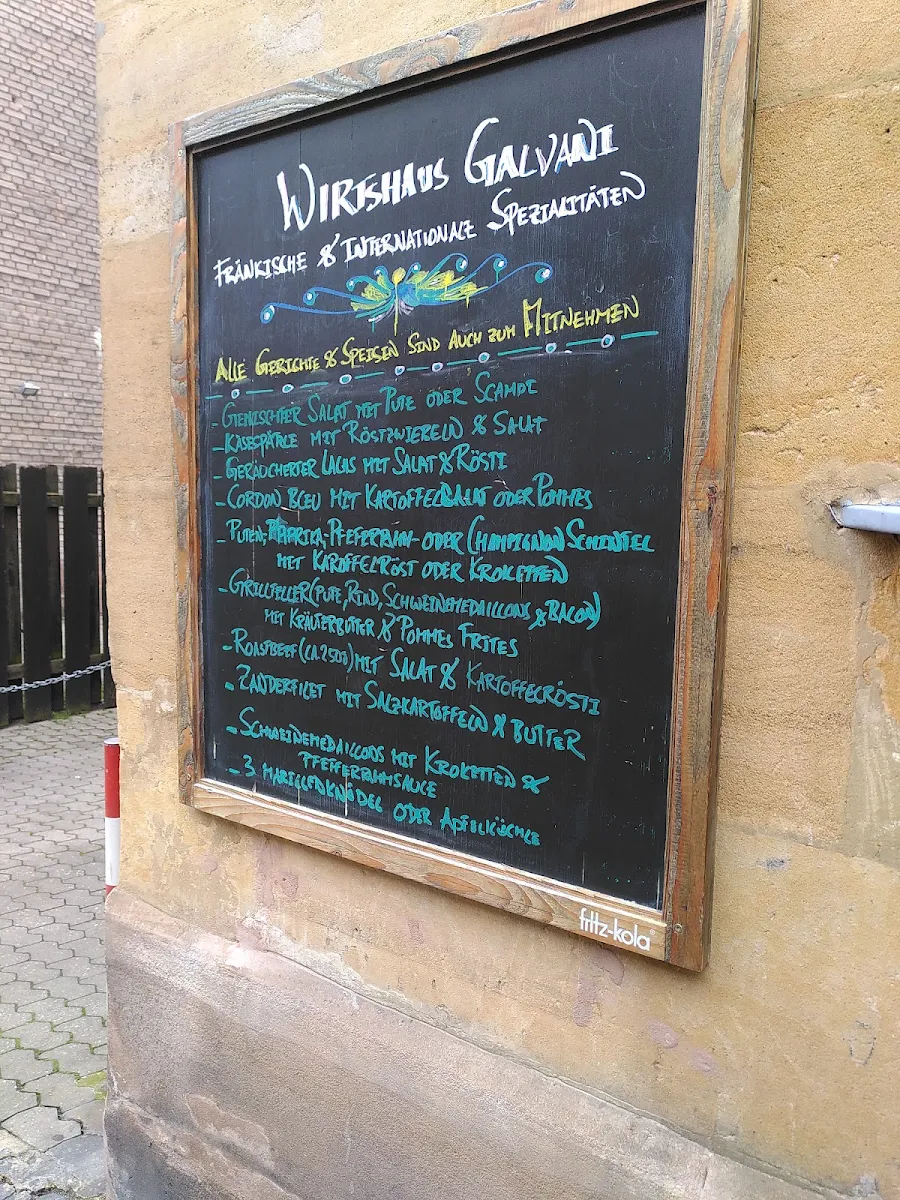 WIRTSHAUS GALVANI
FRÄNKISCHE & INTERNATIONALE SPEZIALITÄTEN
ALLE GERICHTE & SPEISEN SIND AUCH ZUM MITNEHMEN
- GEMISCHTER SALAT MIT PUTE ODER SCAMPI
- KÄSESPÄTZLE MIT RÖSTZWIEBELN & SALAT
- GERÄUCHERTER LACHS MIT SALAT & RÖSTI
- CORDON BLEU MIT KARTOFFELSALAT ODER POMMES
- PUTEN-, PAPRIKA-, PFEFFERRAHM- ODER CHAMPIGNON SCHNITZEL
MIT KAROFFELRÖST ODER KROKETTEN
- GRILLTELLER (PUTE, RIND, SCHWEINEMEDAILLONS & BACON)
MIT KRÄUTERBUTTER & POMMES FRITES
- ROASTBEEF (CA. 250G) MIT SALAT & KARTOFFELRÖSTI
- ZANDERFILET MIT SALZKARTOFFELN & BUTTER
- SCHWEINEMEDAILLONS MIT KROKETTEN &
PFEFFERRAHMSAUCE
- 3 MARILLENKNÖDEL ODER APFELKÜCHLE
fritz-kola®